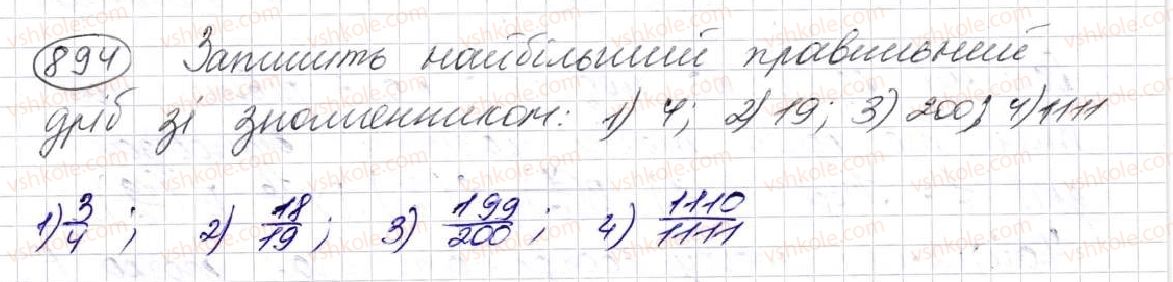 894 Запишіть найбільший правильний
дріб зі знаменником: 1) 4; 2) 19; 3) 200; 4) 1111
1) 3/4 ; 2) 18/19 ; 3) 199/200 ; 4) 1110/1111